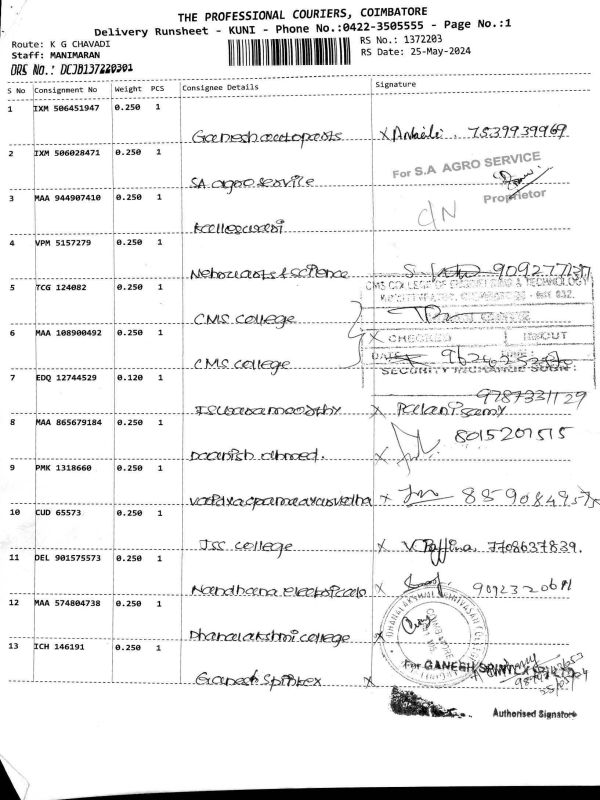 THE PROFESSIONAL COURIERS, COIMBATORE
Delivery Runsheet - KUNI - Phone No.:0422-3505555 - Page No.:1
Route: K G CHAVADI
RS No.: 1372203
Staff: MANIMARAN
RS Date: 25-May-2024
DRS No.: DCJB137220301
S No Consignment No Weight PCS Consignee Details Signature
1 IXM 506451947 0.250 1
Ganesh autoparts X 7539939969
2 IXM 506028471 0.250 1
For S.A AGRO SERVICE
SA agro service
Proprietor
3 MAA 944907410 0.250 1
C/N
4 VPM 5157279 0.250 1
Nehru arts & science
5 TCG 124082 0.250 1
CMS COLLEGE OF ENGINEERING & TECHNOLOGY
CMS college
6 MAA 108900492 0.250 1
X CHECKED IN/OUT
DATE
CMS college
SECURITY INCHARGE SIGN:
7 EDQ 12744529 0.120 1
9787331129
X Palanisamy
8 MAA 865679184 0.250 1
8015207515
Daanish ahmed. X
9 PMK 1318660 0.250 1
X
10 CUD 65573 0.250 1
JSC college X 7708637839.
11 DEL 901575573 0.250 1
Nandhana electricals X
12 MAA 574804738 0.250 1
Dhanalakshmi college X
13 ICH 146191 0.250 1
For GANESH SPINTEX
Ganesh Spintex X
Authorised Signatore